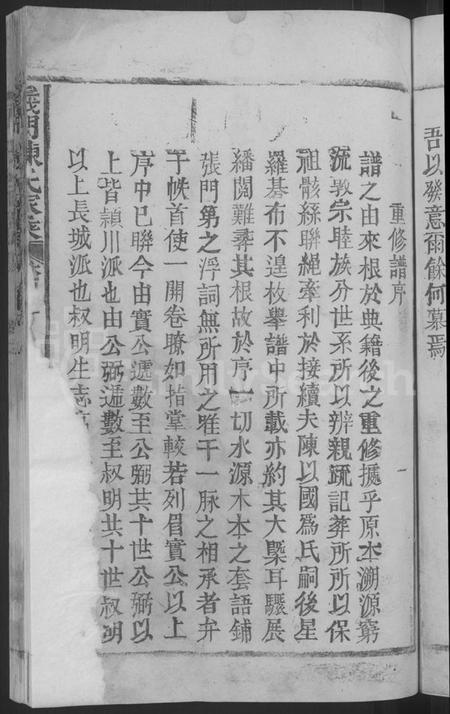 吾以發意爾餘何慕焉
重修譜序
譜之由來根於典籍後之重修攄乎原本溯源窮
流敦宗睦族分世系所以辨親疏記葬所所以保
祖骸絲聯繩牽利於接續夫陳以國爲氏嗣後星
羅碁布不遑枚舉譜中所載亦約其大槩耳驟展
繙閲難尋其根故於序一切水源木本之套語鋪
張門第之浮詞無所用之唯干一脉之相承者弁
于帙首使一開卷瞭如指掌較若列眉實公以上
序中已聯今由實公遞數至公弼共十世公弼以
上皆頴川派也由公弼遞數至叔明共十世叔明
以上長城派也叔明生志高
義門陳氏家乘